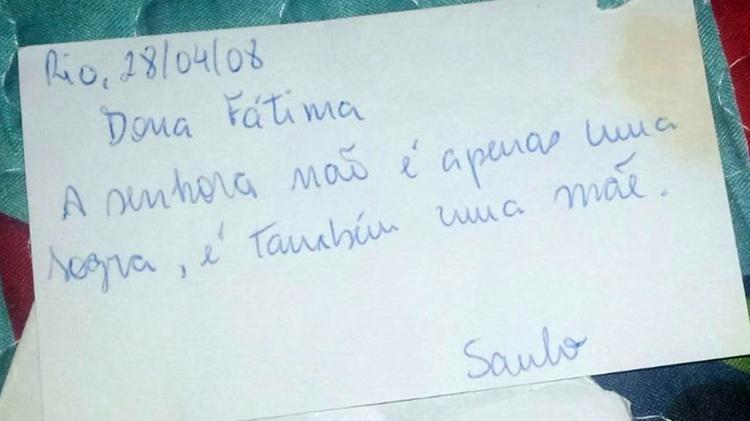 Rio, 28/04/08
Dona Fátima
A senhora não é apenas uma
sogra, é também uma mãe.
Saulo